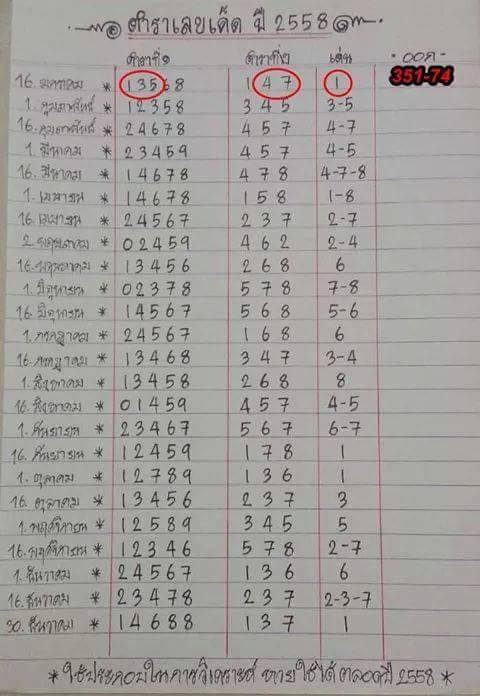 ตำราเลขเด็ด ปี 2558
ตำราที่๑ ตำราที่๒ เด่น -ออก-
16. มกราคม * 13568 147 1 351-74
1. กุมภาพันธ์ * 12358 345 3-5
16. กุมภาพันธ์ * 24678 457 4-7
1. มีนาคม * 23459 457 4-5
16. มีนาคม * 14678 478 4-7-8
1. เมษายน * 14678 158 1-8
16. เมษายน * 24567 237 2-7
2. พฤษภาคม * 02459 462 2-4
16. พฤษภาคม * 13456 268 6
1. มิถุนายน * 02378 578 7-8
16. มิถุนายน * 14567 568 5-6
1. กรกฎาคม * 24567 168 6
16. กรกฎาคม * 13468 347 3-4
1. สิงหาคม * 13458 268 8
16. สิงหาคม * 01459 457 4-5
1. กันยายน * 23467 567 6-7
16. กันยายน * 12459 178 1
1. ตุลาคม * 12789 136 1
16. ตุลาคม * 13456 237 3
1. พฤศจิกายน * 12589 345 5
16. พฤศจิกายน * 12346 578 2-7
1. ธันวาคม * 24567 136 6
16. ธันวาคม * 23478 237 2-3-7
30. ธันวาคม * 14688 137 1
* ใช้ประกอบในการวิเคราะห์ หวยใช้ได้ ตลอดปี 2558 *